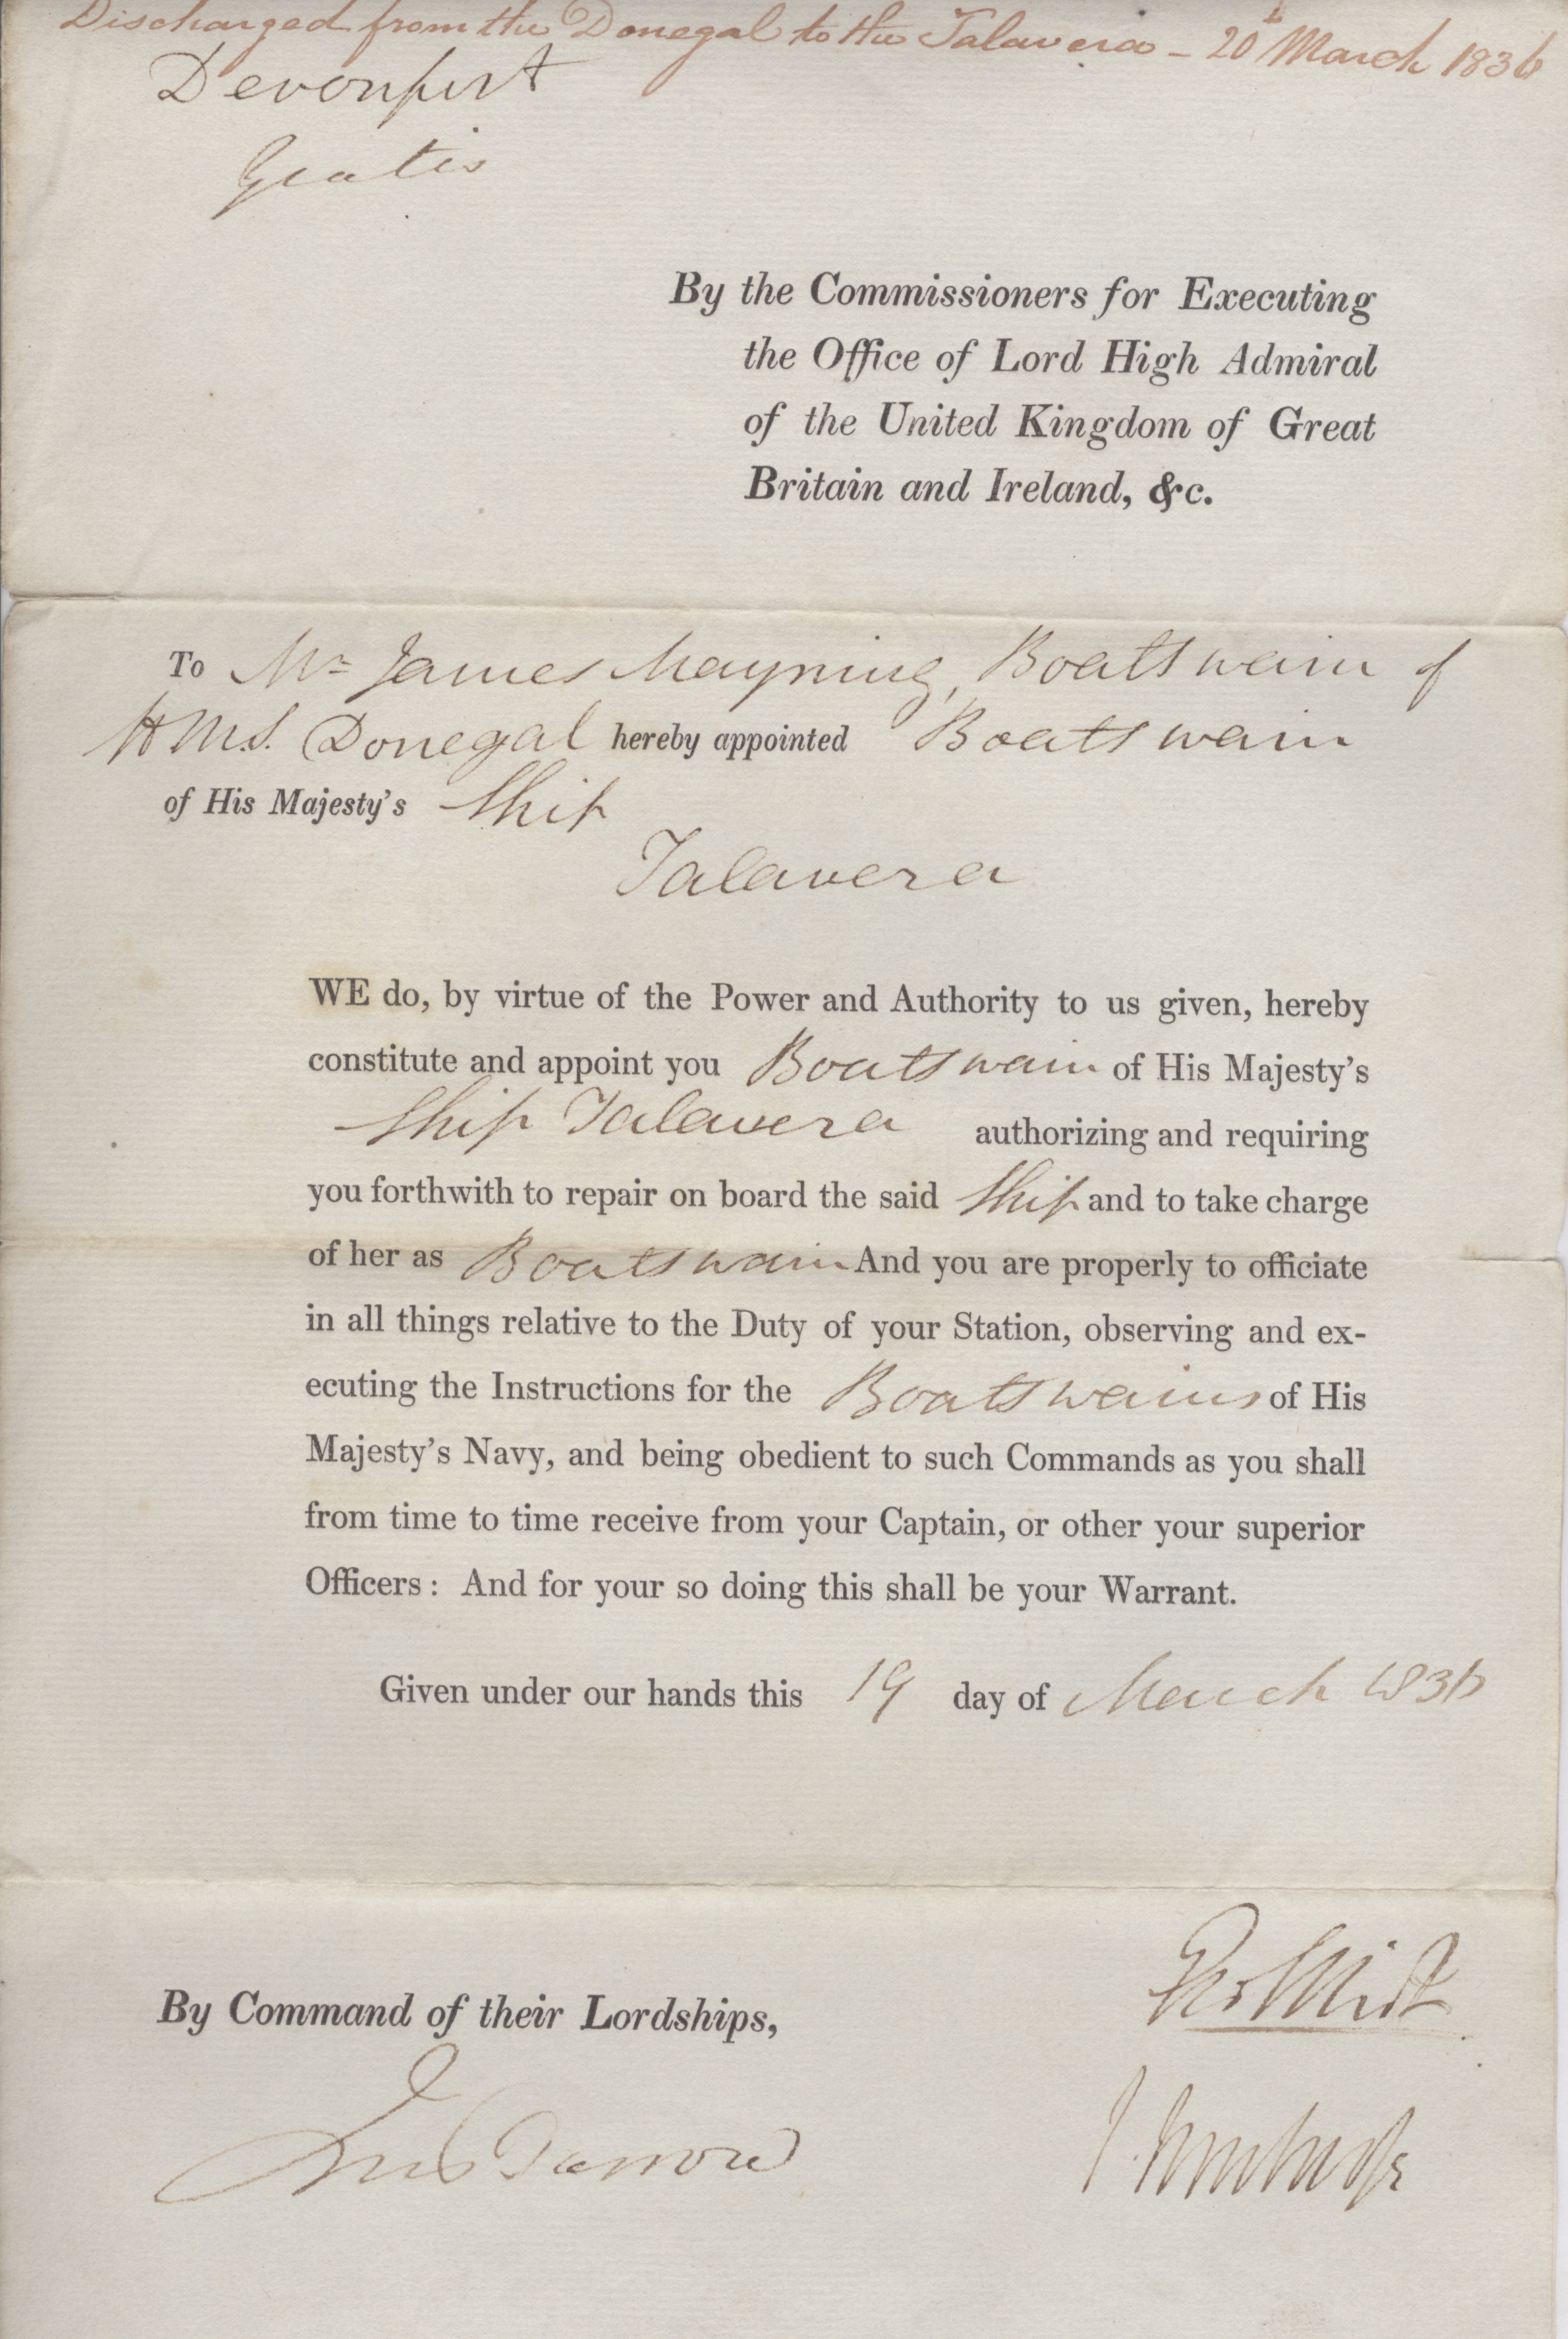 Discharged from the Donegal to the Talavera - 20th March 1836
Devonport
Gratis
By the Commissioners for Executing
the Office of Lord High Admiral
of the United Kingdom of Great
Britain and Ireland, &c.
To Mr James Mayning, Boatswain of
H.M.S. Donegal hereby appointed Boatswain
of His Majesty's Ship
Talavera
WE do, by virtue of the Power and Authority to us given, hereby
constitute and appoint you Boatswain of His Majesty's
Ship Talavera authorizing and requiring
you forthwith to repair on board the said Ship and to take charge
of her as Boatswain And you are properly to officiate
in all things relative to the Duty of your Station, observing and ex-
ecuting the Instructions for the Boatswains of His
Majesty's Navy, and being obedient to such Commands as you shall
from time to time receive from your Captain, or other your superior
Officers : And for your so doing this shall be your Warrant.
Given under our hands this 19 day of March 1836
By Command of their Lordships,
Jno Barrow